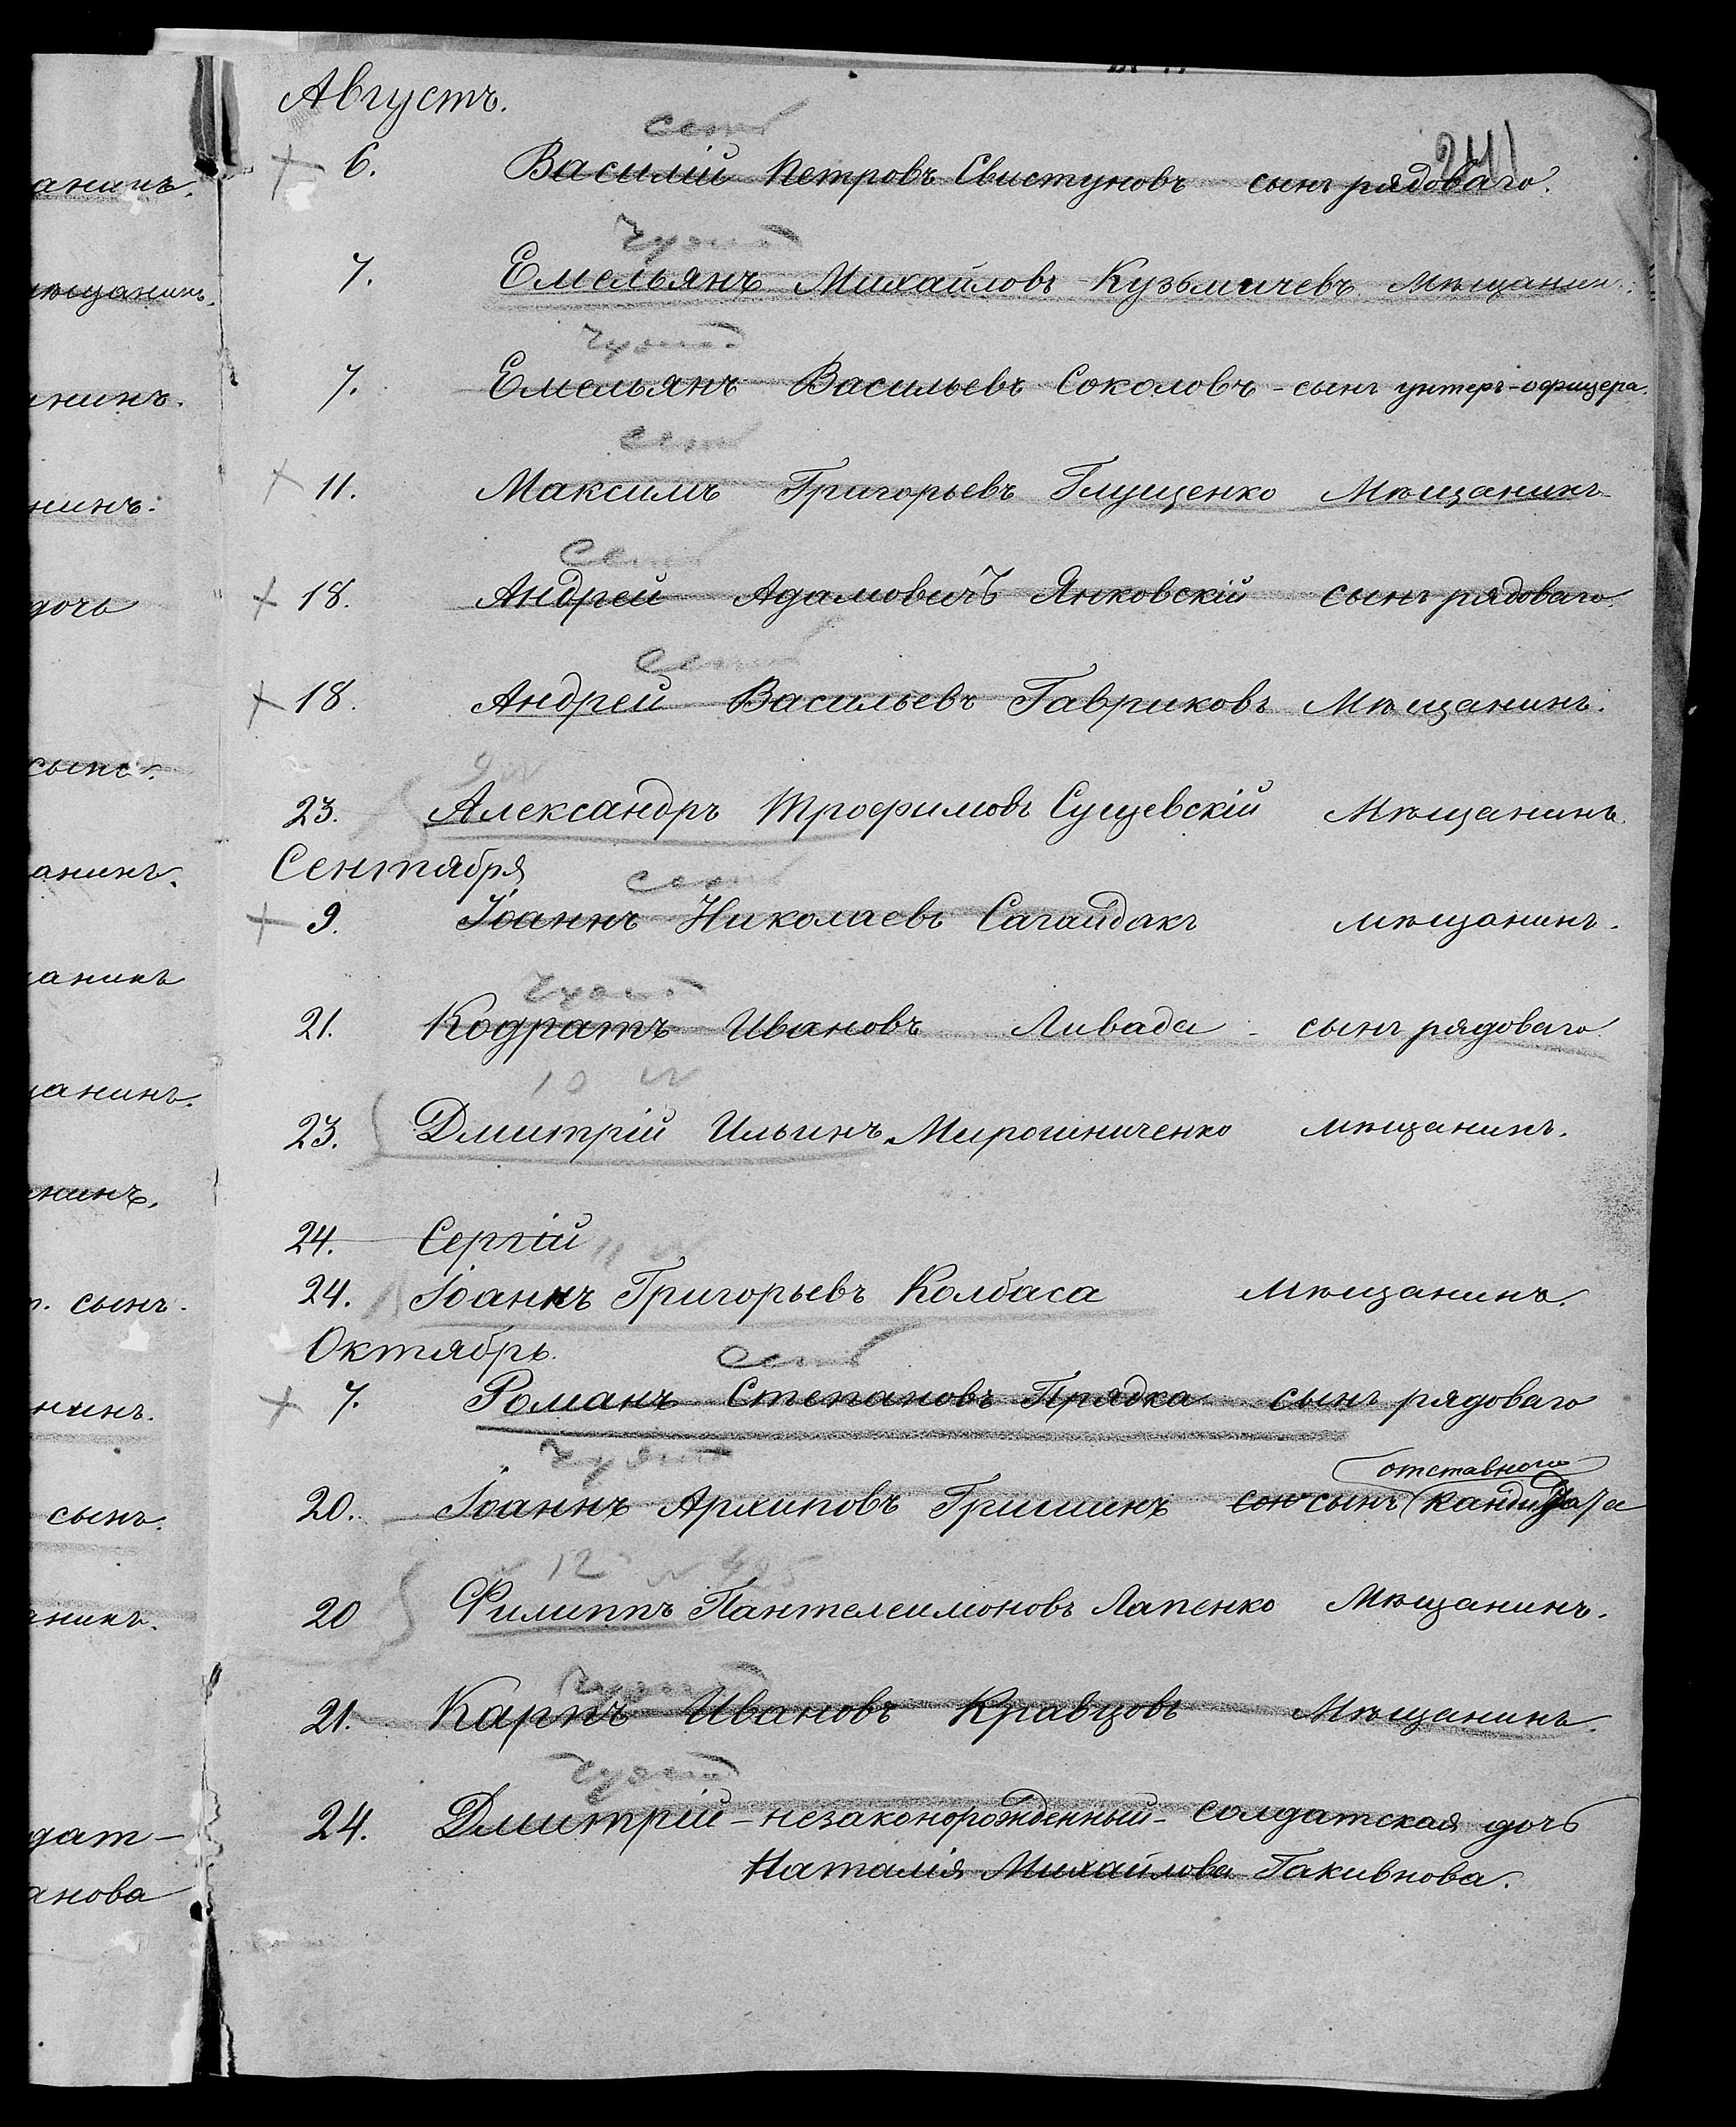 Августъ.
241
есть
+ 6. Василій Петровъ Свистуновъ сынъ рядоваго.
7. Емельянъ Михайловъ Кузьмичевъ Мѣщанин.
7. Емельянъ Васильевъ Соколовъ - сынъ унтеръ-офицера.
есть
+ 11. Максимъ Григорьевъ Глущенко Мѣщанинъ
есть
+ 18. Андрей Адамовичъ Янковскій сынъ рядоваго.
есть
+ 18. Андрей Васильевъ Гавриковъ Мѣщанинъ.
9
23. Александръ Трофимовъ Сущевскій Мѣщанинъ.
Сентября
есть
+ 9. Іоаннъ Николаевъ Сагайдакъ мѣщанинъ.
21. Кодратъ Ивановъ Ливада - сынъ рядоваго
10
23. Дмитрій Ильинъ Мирошниченко мѣщанинъ.
24. Сергій
11
24. Іоаннъ Григорьевъ Колбаса Мѣщанинъ.
Октябрь.
есть
+ 7. Романъ Степановъ Прядка сынъ рядоваго
отставного
20. Іоаннъ Архиповъ Гришинъ сынъ кандидата
12
20 Филиппъ Пантелеимоновъ Лапенко Мѣщанинъ.
21. Карпъ Ивановъ Кравцовъ Мѣщанинъ.
24. Дмитрій - незаконорожденный - солдатская дочь
Наталія Михайлова Гакивнова.
анинъ.
мѣщанинъ.
анинъ.
нинъ.
дочь
сынъ.
анинъ.
анинъ
анинъ.
нинъ.
сынъ.
нинъ.
сынъ.
анинъ.
дат-
анова